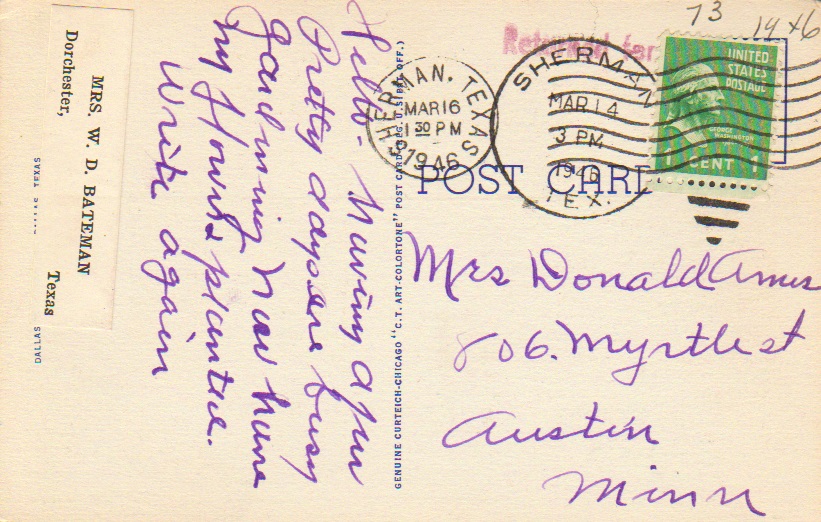 MRS. W. D. BATEMAN
Dorchester,
Texas
DALLAS
TEXAS
Hello - Having a few
Pretty days
busy
my flowers planted.
Write again
GENUINE CURTEICH-CHICAGO "C.T. ART-COLORTONE" POST CARD (REG. U.S. PAT. OFF.)
73
14 x 6
Returned for
SHERMAN, TEXAS
MAR 16
1 30 PM
1946
SHERMAN
MAR 14
3 PM
1946
TEX.
UNITED
STATES
POSTAGE
GEORGE
WASHINGTON
1 CENT 1
POST CARD
Mrs Donald Ames
806. Myrtle st
Austin
Minn